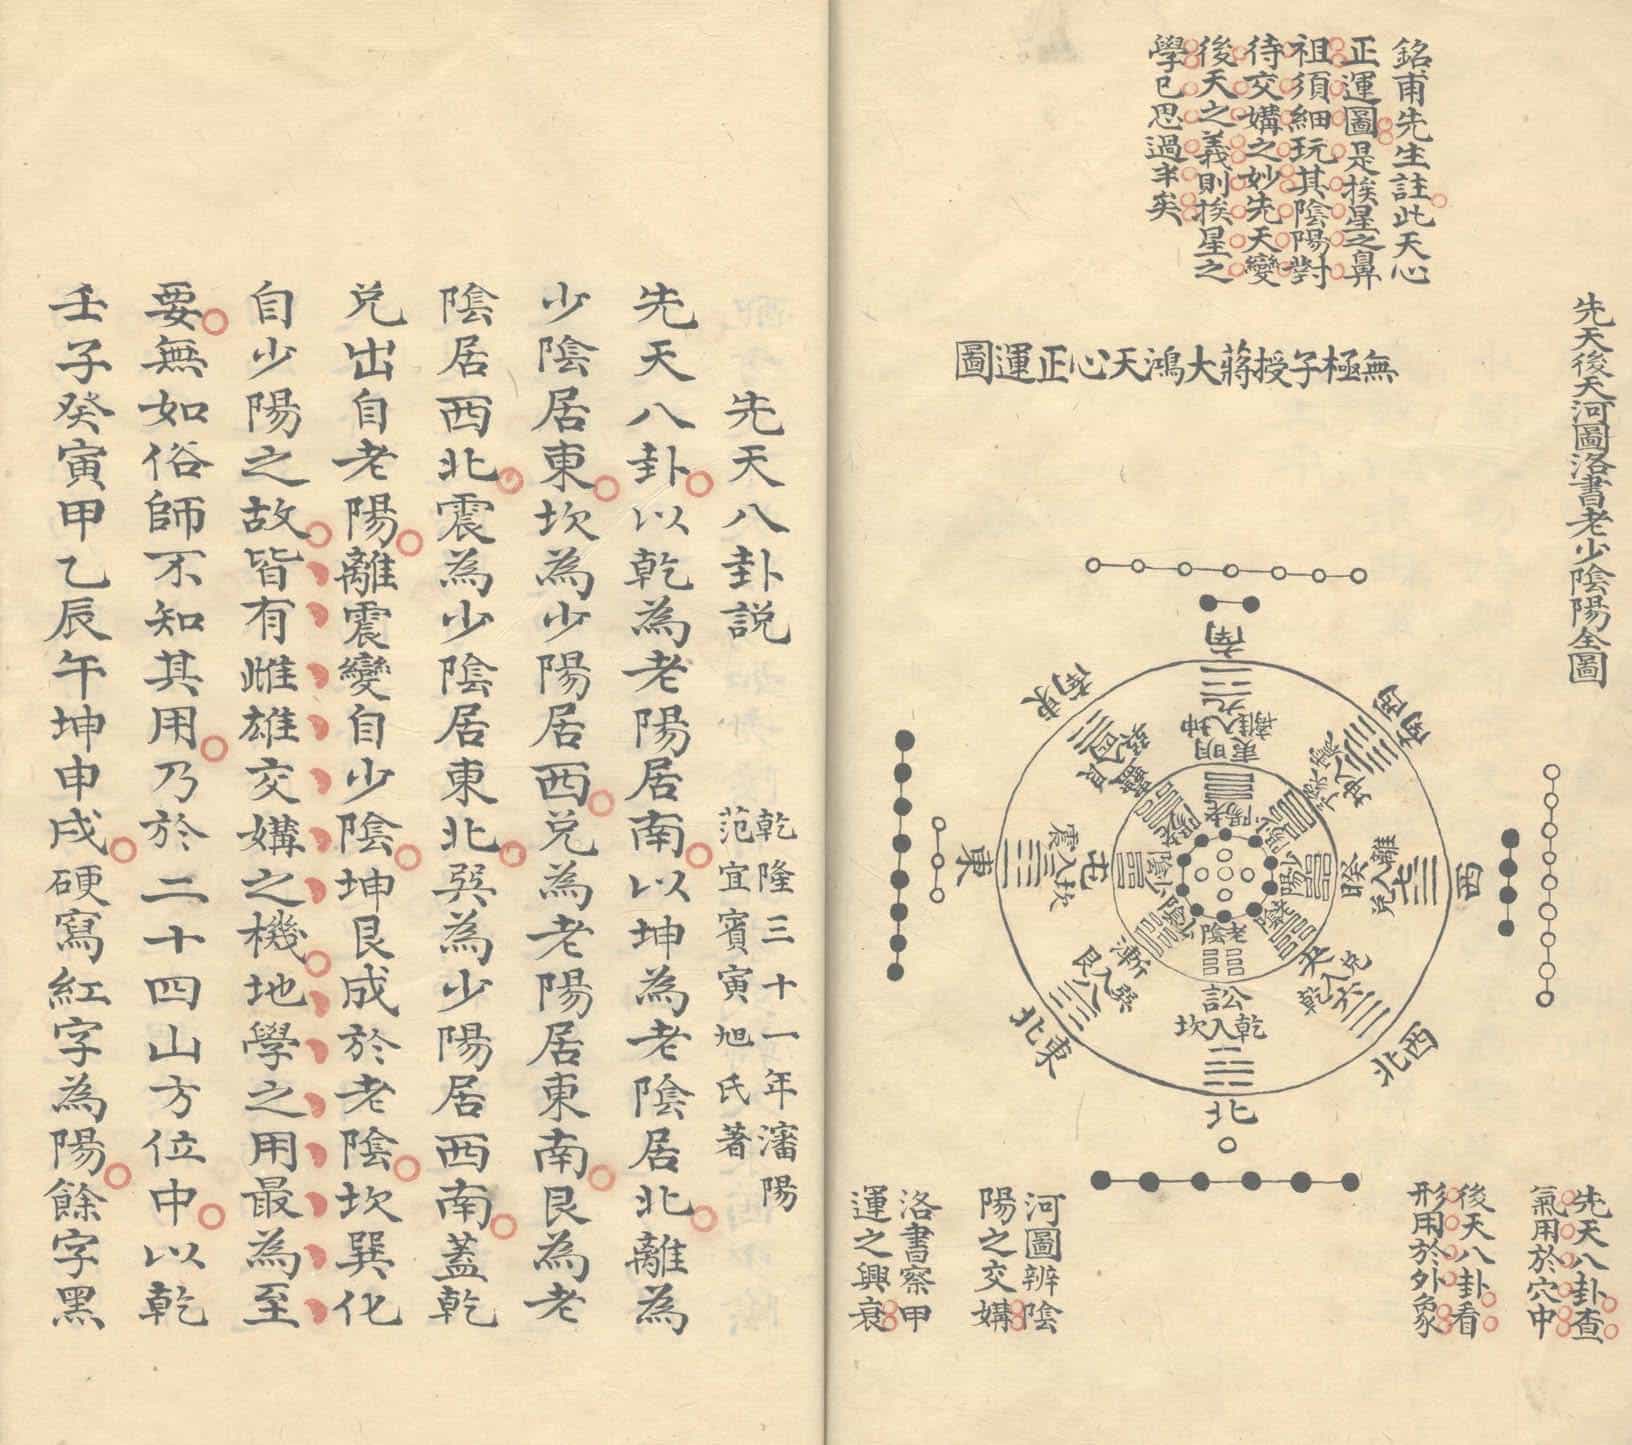 先天後天河圖洛書老少陰陽全圖
銘甫先生註此天心
正運圖是挨星之鼻
祖須細玩其陰陽對
待交媾之妙先天變
後天之義則挨星之
學已思過半矣
無極子授蔣大鴻天心正運圖
南
西南
西
西北
北
東北
東
東南
九
離入坤
明夷
坤入巽
升
七
離入兌
睽
六
兌入乾
夬
乾入坎
訟
八
巽入艮
漸
震入坎
屯
四
艮
蠱
老陽
少陽
老陰
少陰
先天八卦查
氣用於穴中
後天八卦看
形用於外象
河圖辨陰
陽之交媾
洛書察甲
運之興衰
先天八卦説
乾隆三十一年瀋陽
范宜賓寅旭氏著
先天八卦以乾為老陽居南以坤為老陰居北離為
少陰居東坎為少陽居西兌為老陽居東南艮為老
陰居西北震為少陰居東北巽為少陽居西南蓋乾
兌出自老陽離震變自少陰坤艮成於老陰坎巽化
自少陽之故皆有雌雄交媾之機地學之用最為至
要無如俗師不知其用乃於二十四山方位中以乾
壬子癸寅甲乙辰午坤申戌硬寫紅字為陽餘字黑